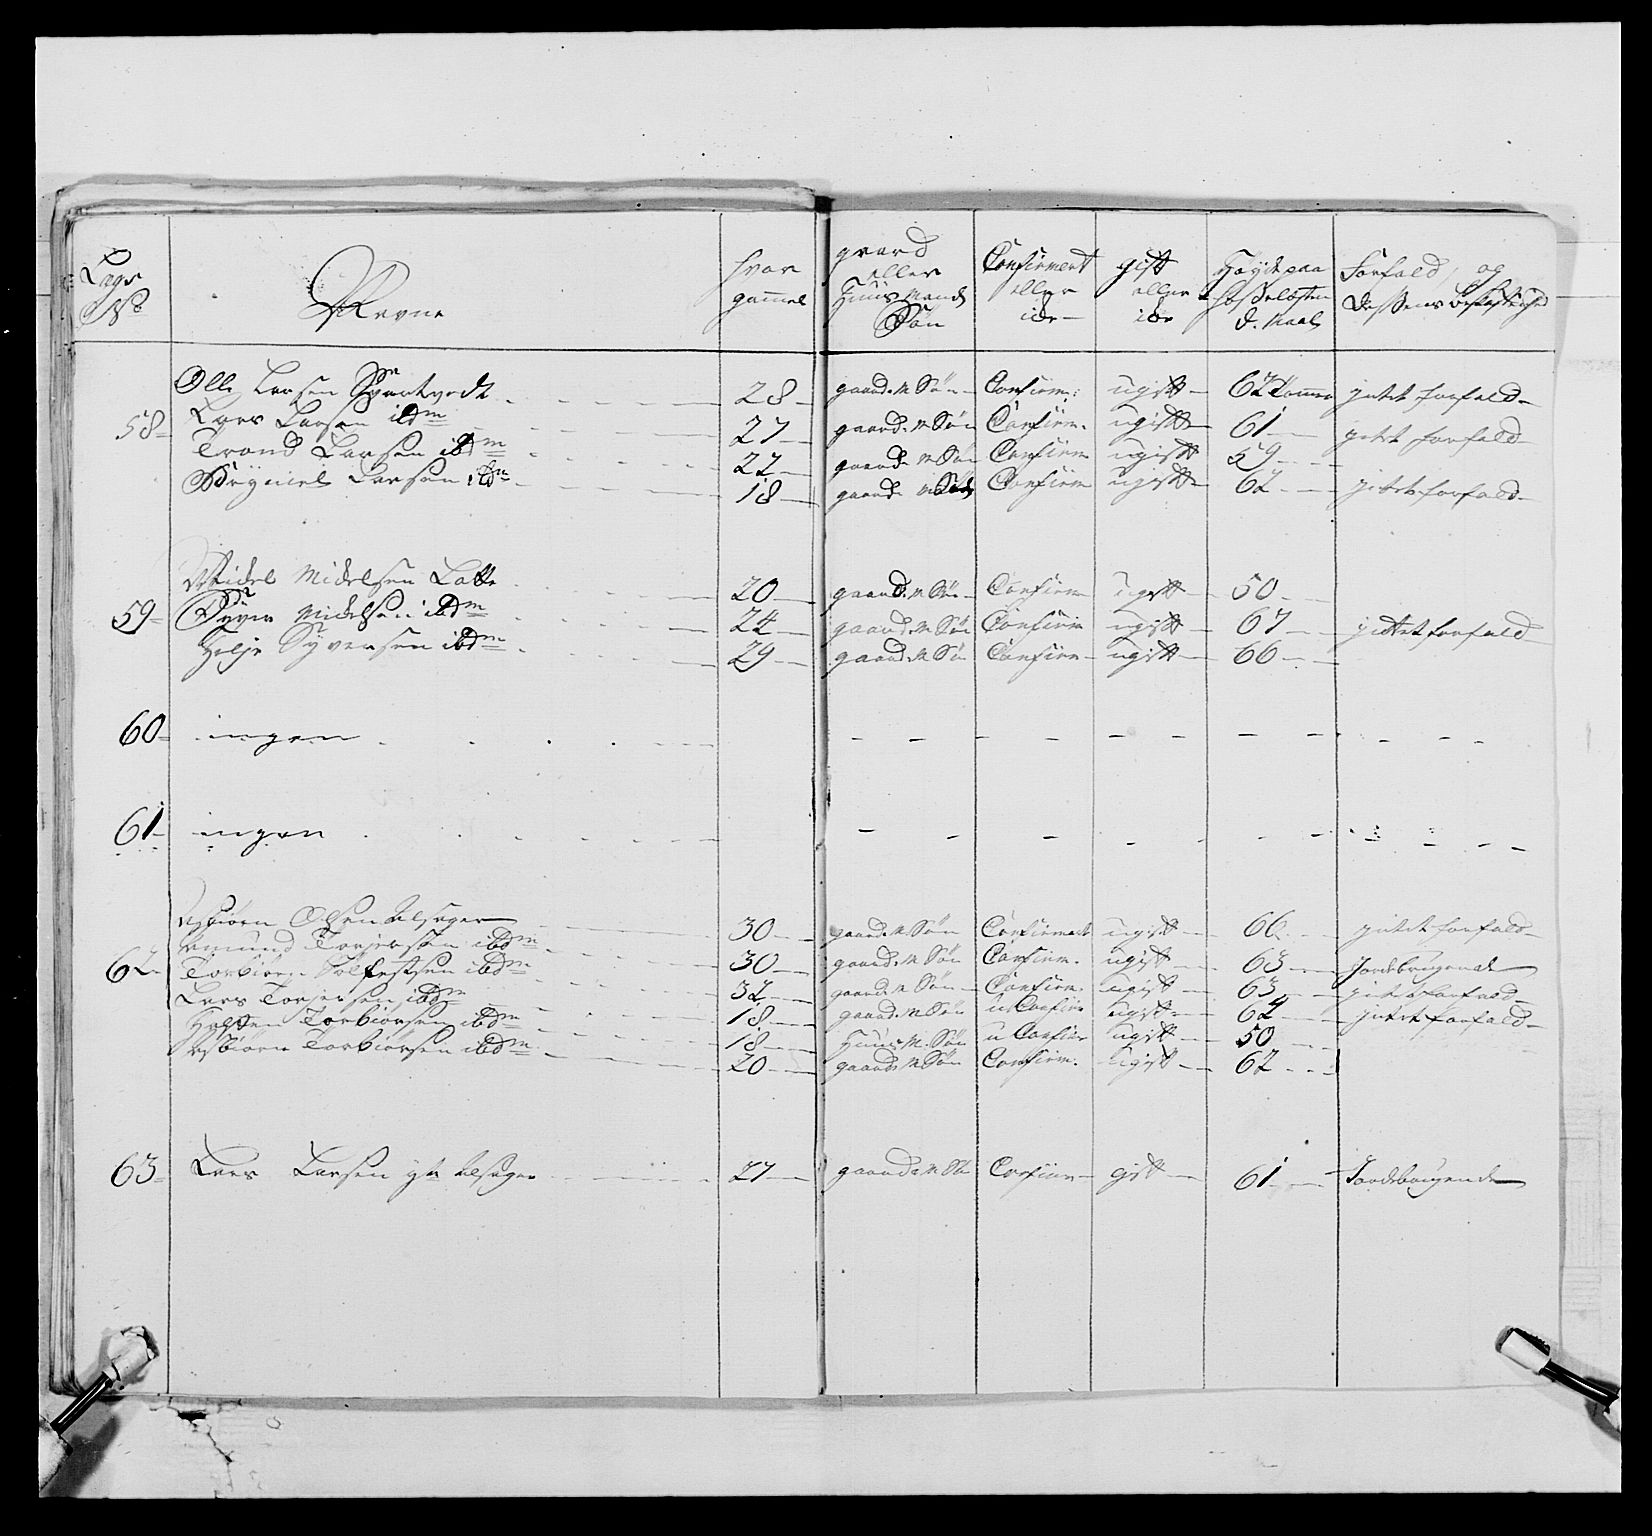 Lags No
Nevne
hvor gammel
gaard eller Huus Mands Søn
Confirmert eller icke
gift eller icke
Høyde paa
D. Maal
Forfald og Dessens
58
Olle Larsen 28 gaard M Søn Confirm: ugift 62 Tommer intet forfald
Lars Larsen ibdm 27 gaard M Søn Confirm. ugift 61 intet forfald
Trond Larsen ibdm 22 gaard M Søn Confirm ugift 59
Larsen ibdm 18 gaard M Confirm ugift 62 intet forfald
59
Midel Midelsen 20 gaard M Søn Confirm ugift 50
Syver Midelsen ibdm 24 gaard M Søn Confirm ugift 67 intet forfald
Helje Syversen ibdm 29 gaard M Søn Confirm ugift 66
60 ingen
61 ingen
62
Asbiørn Olsen Alsager 30 gaard M Søn Confirmert ugift 66 intet forfald
Amund Torjersen ibdm 30 gaard M Søn Confirm. ugift 63 Jordbrugende
Torbiørn ibdm 32 gaard M Søn Confirm. ugift 63 intet forfald
Lars Torjersen ibdm 18 gaard M Søn u Confirm ugift 64 intet forfald
Torbiørsen ibdm 18 Huus M. Søn u Confirm ugift 50
Asbiørn Torbiørsen ibdm 20 gaard M Søn Confirm. ugift 62
63 Lars Larsen Alsager 27 gaard M Søn Confirm gift 61 Jordbrugende